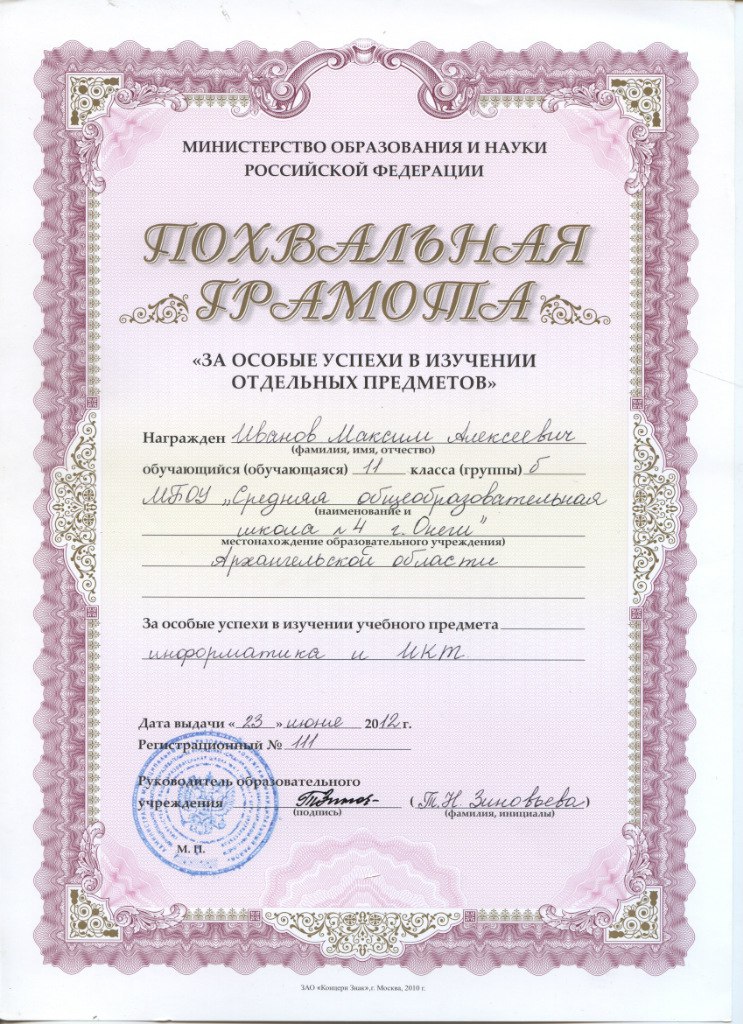 МИНИСТЕРСТВО ОБРАЗОВАНИЯ И НАУКИ
РОССИЙСКОЙ ФЕДЕРАЦИИ
ПОХВАЛЬНАЯ
ГРАМОТА
«ЗА ОСОБЫЕ УСПЕХИ В ИЗУЧЕНИИ
ОТДЕЛЬНЫХ ПРЕДМЕТОВ»
Награжден Иванов Максим Алексеевич
(фамилия, имя, отчество)
обучающийся (обучающаяся) 11 класса (группы) б
МБОУ „Средняя общеобразовательная
(наименование и
школа №4 г. Онеги"
местонахождение образовательного учреждения)
Архангельской области
За особые успехи в изучении учебного предмета
информатика и ИКТ
Дата выдачи « 23 » июня 2012 г.
Регистрационный № 111
Руководитель образовательного
учреждения (Т.Н. Зиновьева)
(подпись) (фамилия, инициалы)
М. П.
ЗАО «Концерн Знак», г. Москва, 2010 г.